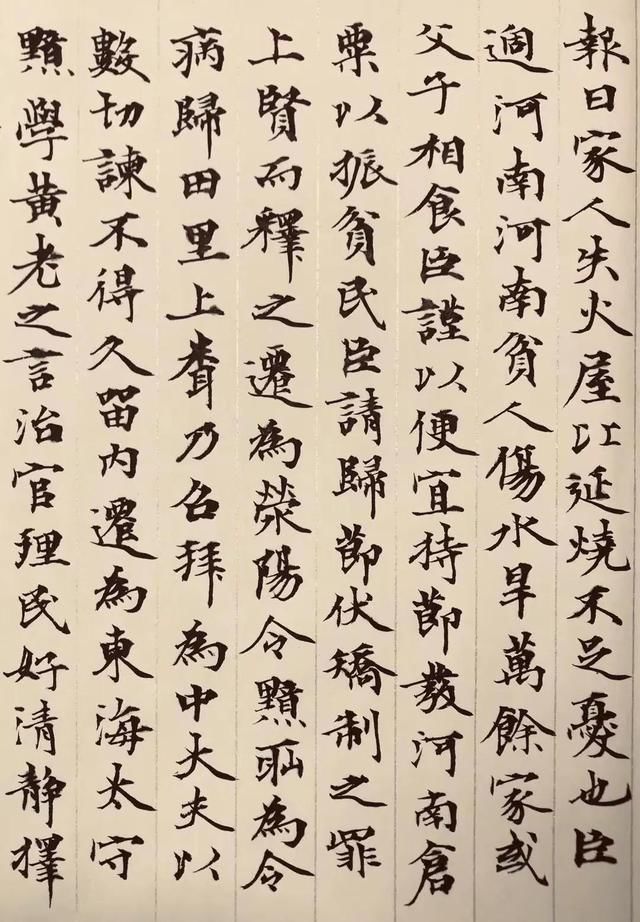 報曰家人失火屋比延燒不足憂也臣
過河南河南貧人傷水旱萬餘家或
父子相食臣謹以便宜持節發河南倉
粟以振貧民臣請歸節伏矯制之罪
上賢而釋之遷為滎陽令黯恥為令
病歸田里上聞乃召拜為中大夫以
數切諫不得久留內遷為東海太守
黯學黃老之言治官理民好清靜擇